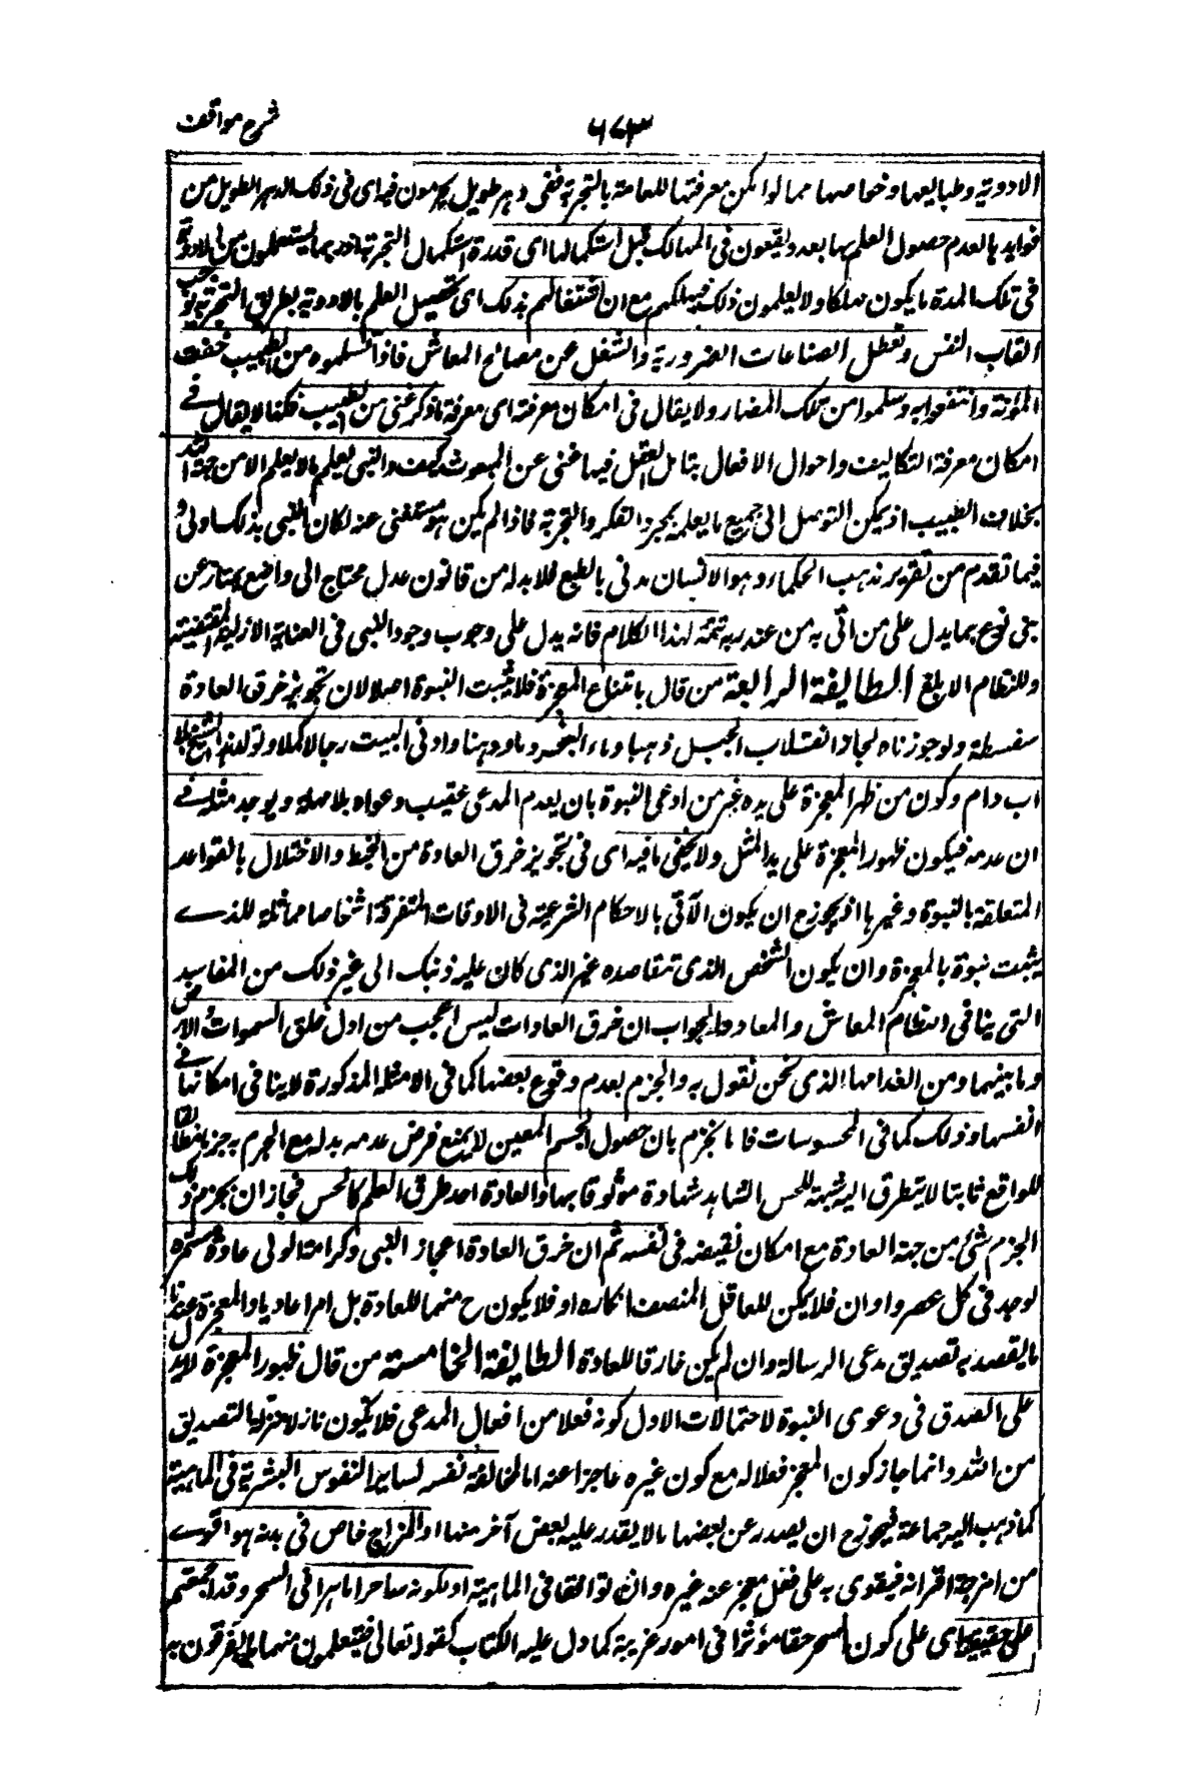 شرح مواقف
٦٧٣
الادوية وطبايعها وخواصها مما لو امكن معرفتها للعامة بالتجربة ففى دهر طويل يحرمون فيه اى فى ذلك الدهر الطويل من
فوايدها لعدم حصول العلم بها بعد ويقعون فى المهالك قبل استكمالها اى قدرة استكمال التجربة اذ ربما يستعملون من الادوية
فى تلك المدة ما يكون مهلكا ولا يعلمون ذلك فيهلكهم مع ان اشتغالهم بذلك اى تحصيل العلم بالادوية بطريق التجربة يوجب
اتعاب النفس وتعطل الصناعات الضرورية والشغل عن مصالح المعاش فاذا تسلموه من الطبيب خفت
المؤنة وانتفعوا به وسلموا من تلك المضار ولا يقال فى امكان معرفته اى معرفة ما ذكر غنى من الطبيب فكذا لا يقال فے
امكان معرفة التكاليف واحوال الافعال بتامل العقل فيها غنى عن المبعوث كيف والنبى يعلم ما لا يعلم الا من جهة الله
بخلاف الطبيب اذ يمكن التوصل الى جميع ما يعلمه بمجرد الفكر والتجربة فاذا لم يكن هو مستغنى عنه لكان النبى بذلك اولى و
فيما تقدم من تقرير مذهب الحكماء وهو الانسان مدنى بالطبع فلا بد له من قانون عدل محتاج الى واضع يمتاز عن
بنى نوعه بما يدل على من اتى به من عند ربه تتمة لهذا الكلام فانه يدل على وجوب وجود النبى فى العناية الازلية المقتضية
وللنظام الابلغ الطايفة الرابعة من قال بامتناع المعجزة فلا تثبت النبوة اصلا لان تجويز خرق العادة
سفسطة ولو جوزناه لجاز انقلاب الجبل ذهبا وماء البحر دما ودهنا واوانى البيت رجالا كملا وتولد هذا الشيخ بلا
اب دام وكون من ظهر المعجزة على يده غير من ادعى النبوة بان يعدم المدعى عقيب دعواه بلا مهلة ويوجد مثله فے
ان عدمه فيكون ظهور المعجزة على يد المثل ولا يخفى ما فيه اى فى تجويز خرق العادة من الخبط والاختلال بالقواعد
المتعلقة بالنبوة وغيرها اذ يجوز ح ان يكون الآتى بالاحكام الشرعية فى الاوقات المتفرقة اشخاصا مماثلة للذے
يثبت نبوة بالمعجزة وان يكون الشخص الذى تتقاضاه غير الذى كان عليه دينك الى غير ذلك من المفاسد
التى ينافى انتظام المعاش والمعاد والجواب ان خرق العادات ليس اعجب من اول خلق السموات والارض
وما بينهما ومن انعدامها الذى نحن نقول به والجزم بعدم وقوع بعضها كما فى الامثلة المذكورة لا ينافى امكانها فے
انفسها وذلك كما فى المحسوسات فانا نجزم بان حصول الجسم المعين لا يمنع فرض عدمه بدله مع الجزم به جزما مطابقا
للواقع ثابتا لا يتطرق اليه شبهة للحس الشاهد شهادة موثوقا بها والعادة احد طرق العلم كالحس فجاز ان نجزم ذلك
الجزم بشئ من جهة العادة مع امكان نقيضه فى نفسه ثم ان خرق العادة اعجاز النبى وكرامة الولى عادة مستمرة
توجد فى كل عصر واوان فلا يمكن للعاقل المنصف انكاره او فلا يكون ح منهما للعادة بل امرا عاديا والمعجزة عندنا
ما يقصد به تصديق مدعى الرسالة وان لم يكن خارقا للعادة الطايفة الخامسة من قال ظهور المعجزة لا يدل
على الصدق فى دعوى النبوة لاحتمالات الاول كونه فعلا من افعال المدعى فلا يكون نازلا منزلة التصديق
من الله وانما جاز كون المعجز فعلا له مع كون غيره عاجزا عنه اما لمخالفة نفسه لسايرا لنفوس البشرية فى الماهية
كما ذهب اليه جماعة فيجوز ح ان يصدر عن بعضها ما لا يقدر عليه بعض آخر منها او لمزاج خاص فى بدنه هو اقوے
من امزجة اقرانه فيقوى به على فعل معجز عنه غيره وان توافقا فى الماهية او لكونه ساحرا ماهرا فى السحر وقد اجمعتم
على حقيقته اى على كون السحر حقا مؤثرا فى امور غريبة كما دل عليه الكتاب كقوله تعالى فيتعلمون منهما ما يفرقون به